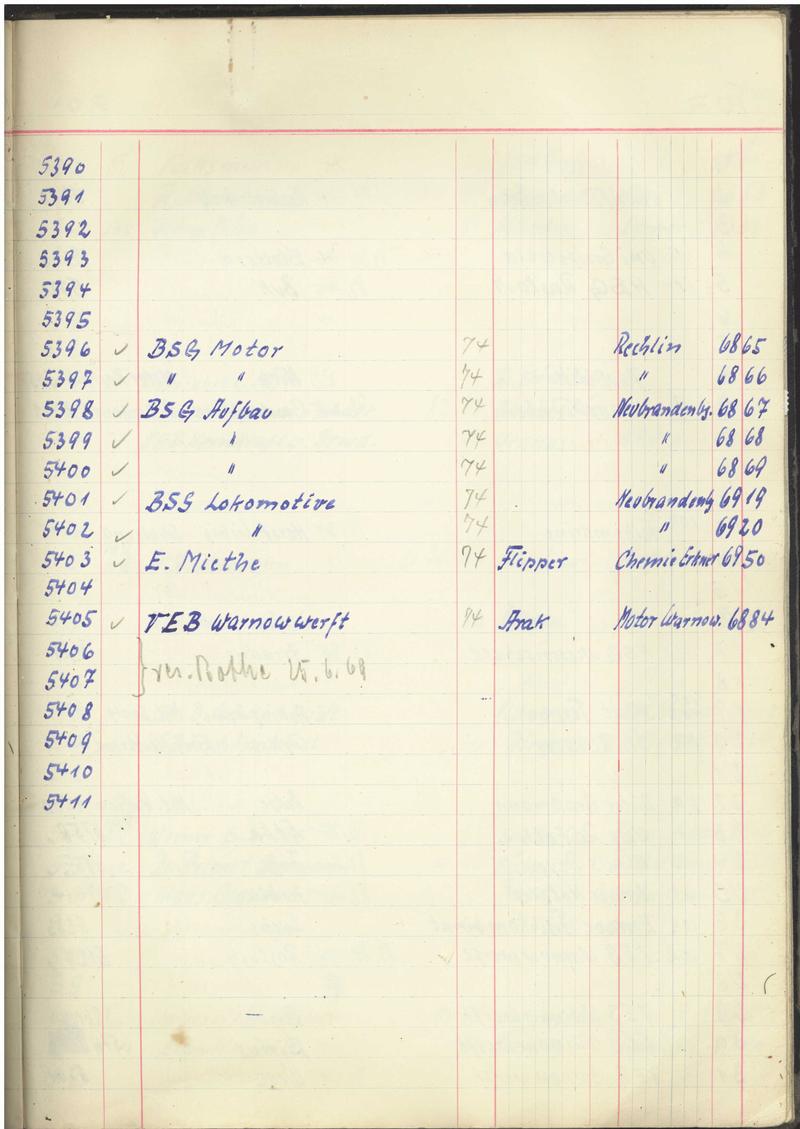 5390
5391
5392
5393
5394
5395
5396 ✓ BSG Motor 74 Rechlin 6865
5397 ✓ " " 74 " 6866
5398 ✓ BSG Aufbau 74 Neubrandenbg. 6867
5399 ✓ " 74 " 6868
5400 ✓ " 74 " 6869
5401 ✓ BSG Lokomotive 74 Neubrandenbg 6919
5402 ✓ " 74 " 6920
5403 ✓ E. Miethe 74 Flipper Chemie Erkner 6950
5404
5405 ✓ VEB Warnowwerft 74 Arak Motor Warnow. 6884
5406
5407 } res. Bothe 25.6.69
5408
5409
5410
5411